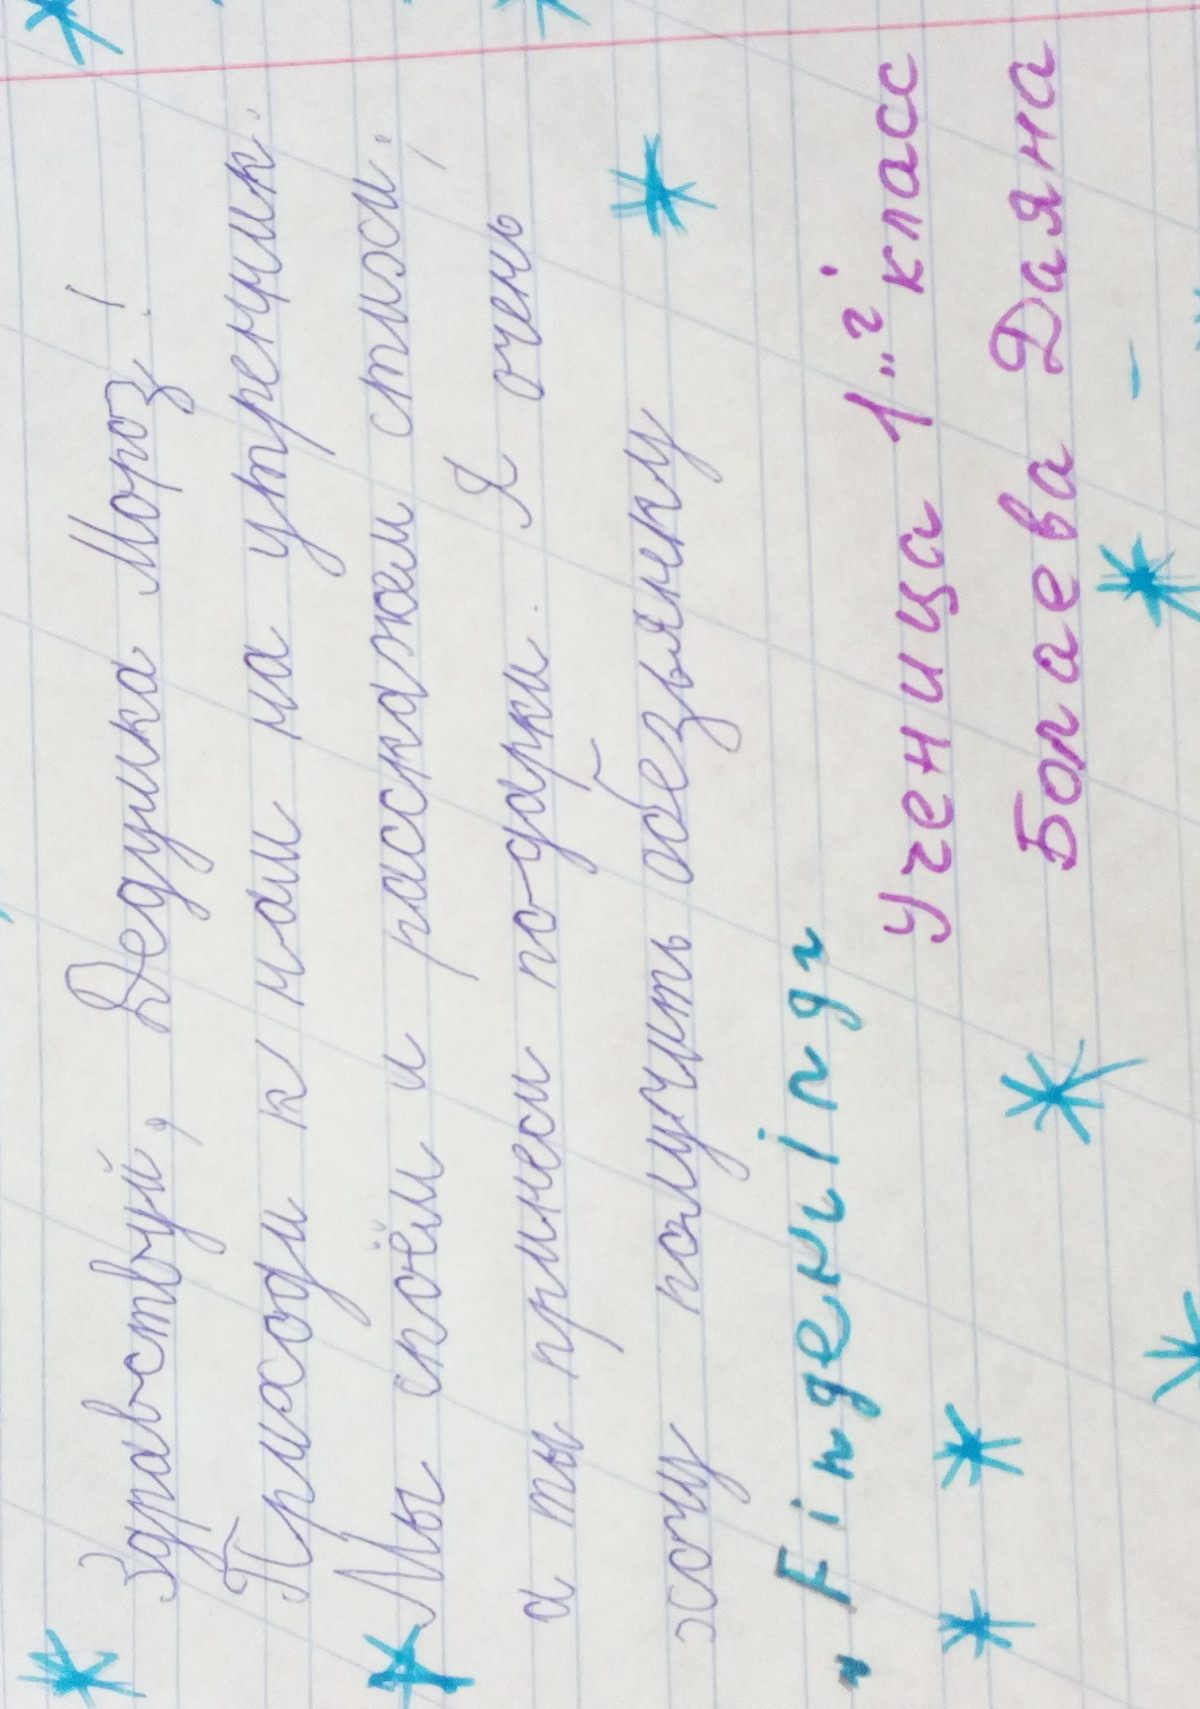 Здравствуй, Дедушка Мороз!
Приходи к нам на утренник.
Мы споём и расскажем стихи,
а ты принеси подарки. Я очень
хочу получить обезьянку
"Fingerlings"
Ученица 1"г" класс
Болаева Даяна